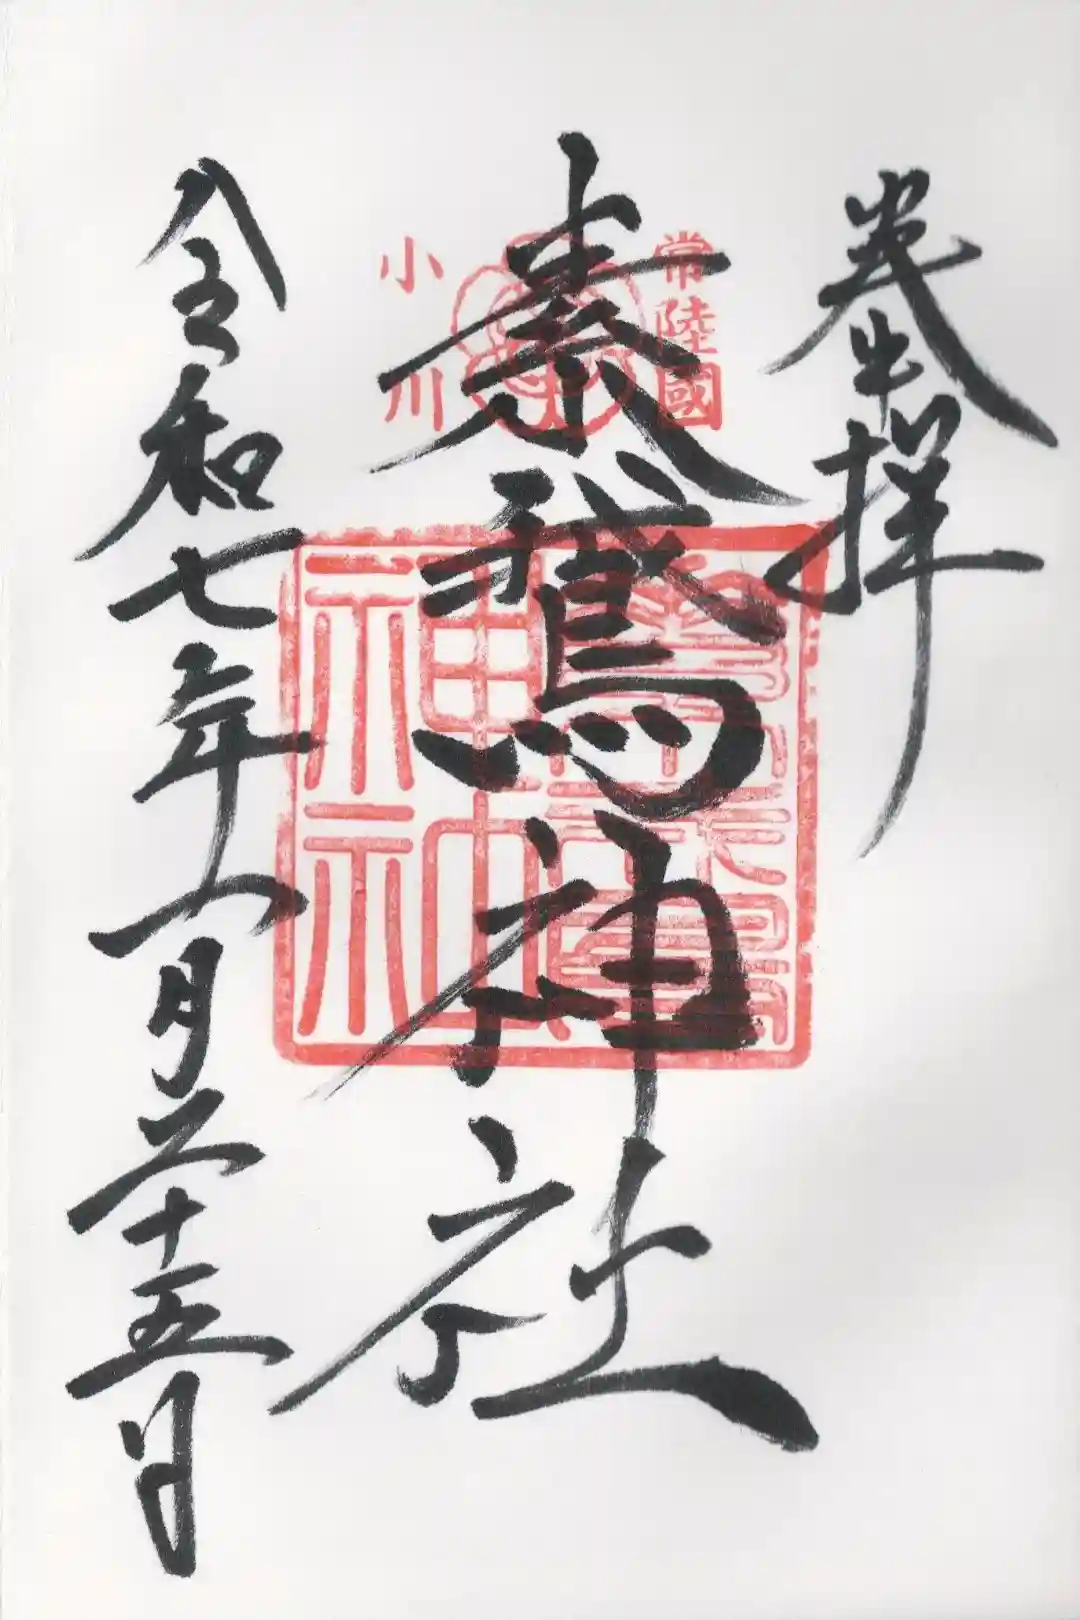 奉拝
常陸國
小川
素鵞神社
素鵞
神社
令和七年 月二十五日